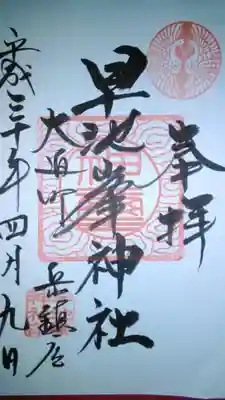 奉拝
早池峯神社
大迫町
岳鎮座
平成三十年四月九日